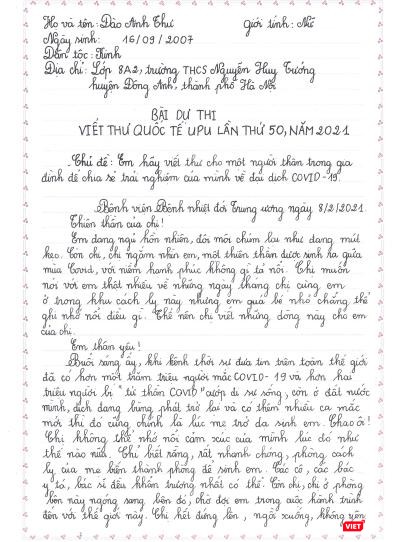 Họ và tên: Đào Anh Thư giới tính: Nữ
Ngày sinh: 16/09/2007
Dân tộc: Kinh
Địa chỉ: Lớp 8A2, trường THCS Nguyễn Huy Tưởng
huyện Đông Anh, thành phố Hà Nội
BÀI DỰ THI
VIẾT THƯ QUỐC TẾ UPU LẦN THỨ 50, NĂM 2021
Chủ đề: Em hãy viết thư cho một người thân trong gia
đình để chia sẻ trải nghiệm của mình về đại dịch COVID-19.
Bệnh viện Bệnh nhiệt đới Trung ương ngày 8/2/2021
Thiên thần của chị!
Em đang ngủ hồn nhiên, đôi môi chúm lại như đang mút
kẹo. Còn chị, chị ngắm nhìn em, một thiên thần được sinh ra giữa
mùa Covid, với niềm hạnh phúc không gì tả nổi. Chị muốn
nói với em thật nhiều về những ngày tháng chị cùng em
ở trong khu cách ly này nhưng em quá bé nhỏ chẳng thể
ghi nhớ nổi điều gì. Thế nên chị viết những dòng này cho em
của chị.
Em thân yêu!
Buổi sáng ấy, khi kênh thời sự đưa tin trên toàn thế giới
đã có hơn một trăm triệu người mắc COVID-19 và hơn hai
triệu người bị "tử thần COVID" cướp đi sự sống, còn ở đất nước
mình, dịch đang bùng phát trở lại và có thêm nhiều ca mắc
mới thì đó cũng chính là lúc mẹ trở dạ sinh em. Chao ôi!
Chị không thể nhớ nổi cảm xúc của mình lúc đó như
thế nào nữa. Chỉ biết rằng, rất nhanh chóng, phòng cách
ly của mẹ biến thành phòng đẻ sinh em. Các cô, các bác
y tá, bác sĩ đều khẩn trương nhất có thể. Còn chị, chị ở phòng
bên này ngóng sang bên đó, chờ đợi em trong cuộc hành trình
đến với thế giới này. Chị hết đứng lên, ngồi xuống, không yên
VIET